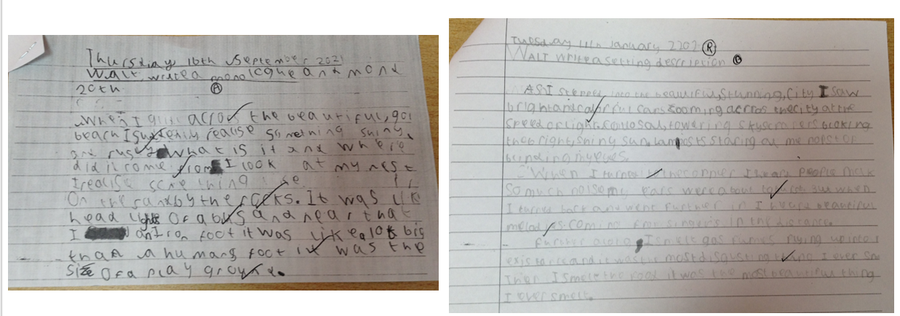 Thursday 16th September 2021
Walt write a monologue and mond
20th
A
When I gun across the beautiful, gol
beach I suddenly realise something shiny
and rusy What is it and where
did it come from I look at my nest
I realise some thing else
On the sand by the rocks. It was like
head lights Of a bus and near that
I an Iron foot it was like a lot big
than a humans foot it was the
size Of a play ground.
Tuesday 11th January 2202 R
WALT Write a setting description
As I stepped into the beautiful, stunning, city I saw
bright and colourful cars zooming across the city at the
speed of light. Colosal, towering skyscrapers bloking
the bright, shiny sun. lamposts staring at me not
blinking
When I turned the corner I hear people make
so much noise my ears were about to but when
I turned back and went further in I heard beautiful
coming from singers in the distance.
Further along, I smelt gas
and it was the most disgusting thing I ever
Then I smelt the food it was the most beautiful thing
I ever smelt.